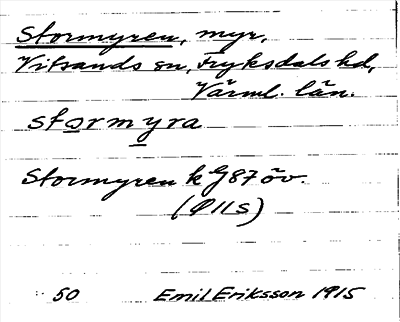 Stormyren, myr,
Vitsands sn, Fryksdals hd,
Värml. län.
stormyra
Stormyren k G 87 öv.
(Ö 11 S)
50 Emil Eriksson 1915